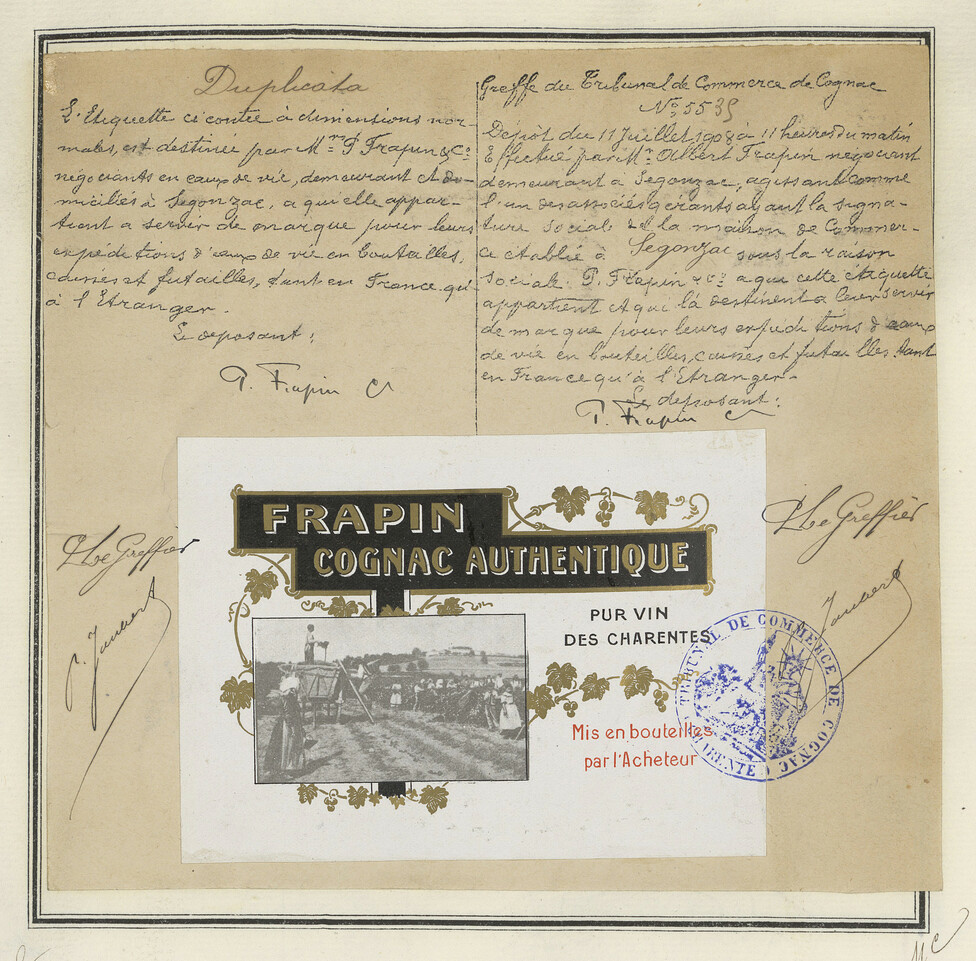 Duplicata
L'Etiquette ci contre à dimensions nor-
males, est destinée par Mrs P. Frapin & Co.
négociants en eaux de vie, demeurant et do-
miciliés à Segonzac, a qui elle appar-
tient a servir de marque pour leurs
expéditions d'eaux de vie en bouteilles,
caisses et futailles, tant en France qu'
à l'Etranger.
Le deposant:
P. Frapin Co
Greffe du Tribunal de Commerce de Cognac
No. 5535
Dépôt du 11 Juillet à 11 heures du matin
Effectué par Mr. Albert Frapin négociant
demeurant à Segonzac, agissant comme
l'un des associés gérants ayant la signa-
ture sociale de la maison de Commer-
ce établie à Segonzac sous la raison
sociale P. Frapin & Co. a qui cette étiquette
appartient et qui la destinent a leur servir
de marque pour leurs expéditions d'eaux
de vie en bouteilles, caisses et futailles tant
en France qu'à l'Etranger.
Le deposant:
P. Frapin Co
FRAPIN
COGNAC AUTHENTIQUE
PUR VIN
DES CHARENTES
Mis en bouteilles
par l'Acheteur
Le Greffier
Le Greffier
TRIBUNAL DE COMMERCE DE COGNAC
(CHARENTE)